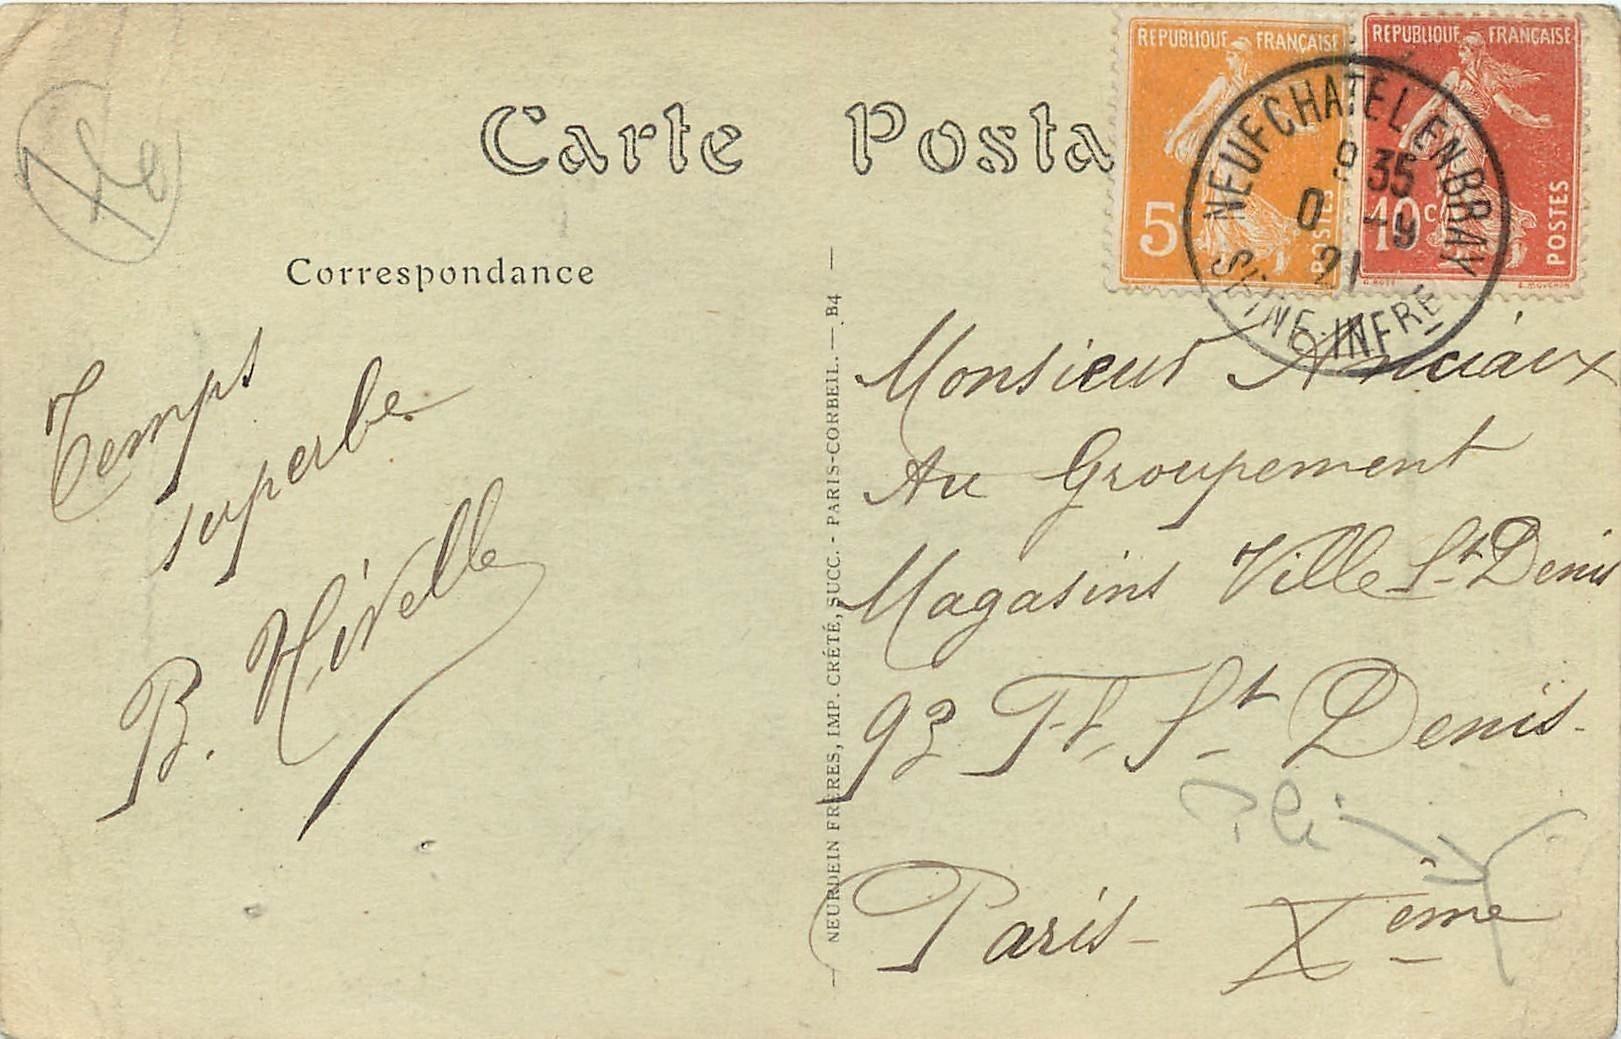 Carte Posta
REPUBLIQUE FRANÇAISE
5
POSTES
REPUBLIQUE FRANÇAISE
10c
POSTES
NEUFCHATEL-EN-BRAY
9 35
-9
21
SEINE-INFRE
Correspondance
Temps
superbe
B. Hivelle
NEURDEIN FRÈRES, IMP. CRÉTÉ, SUCC. - PARIS-CORBEIL. — B4
Monsieur Anciaux
Au Groupement
Magasins Ville St Denis
93 F. St Denis -
Pli
Paris - Xème